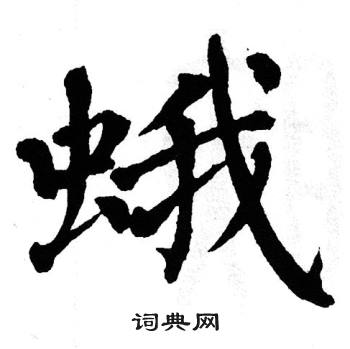 蛾
词典网